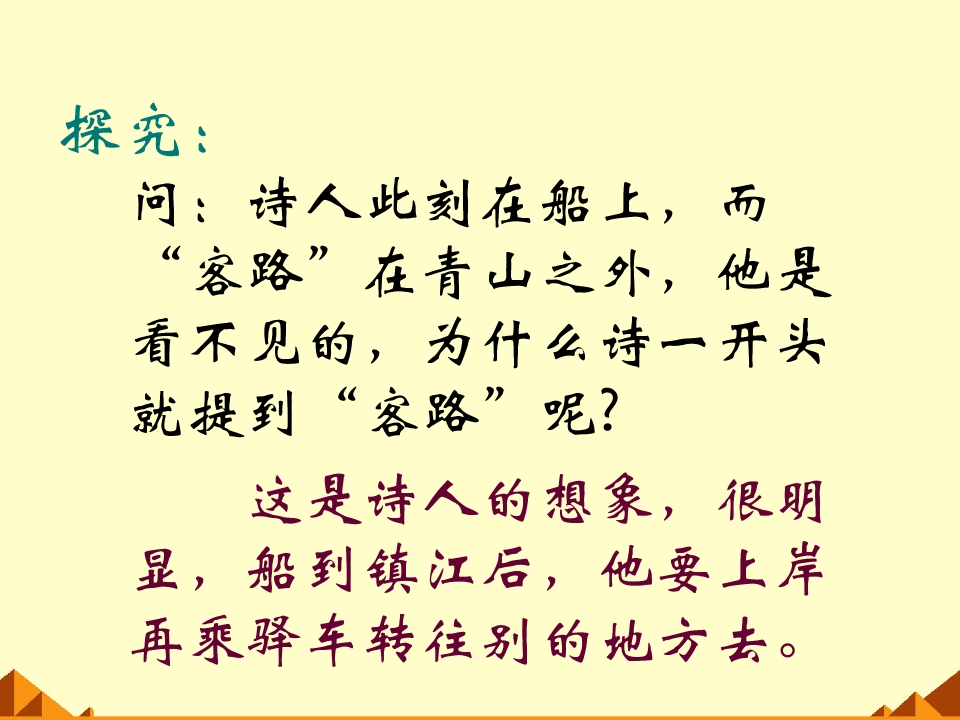 探究：
问：诗人此刻在船上，而
“客路”在青山之外，他是
看不见的，为什么诗一开头
就提到“客路”呢？
这是诗人的想象，很明
显，船到镇江后，他要上岸
再乘驿车转往别的地方去。